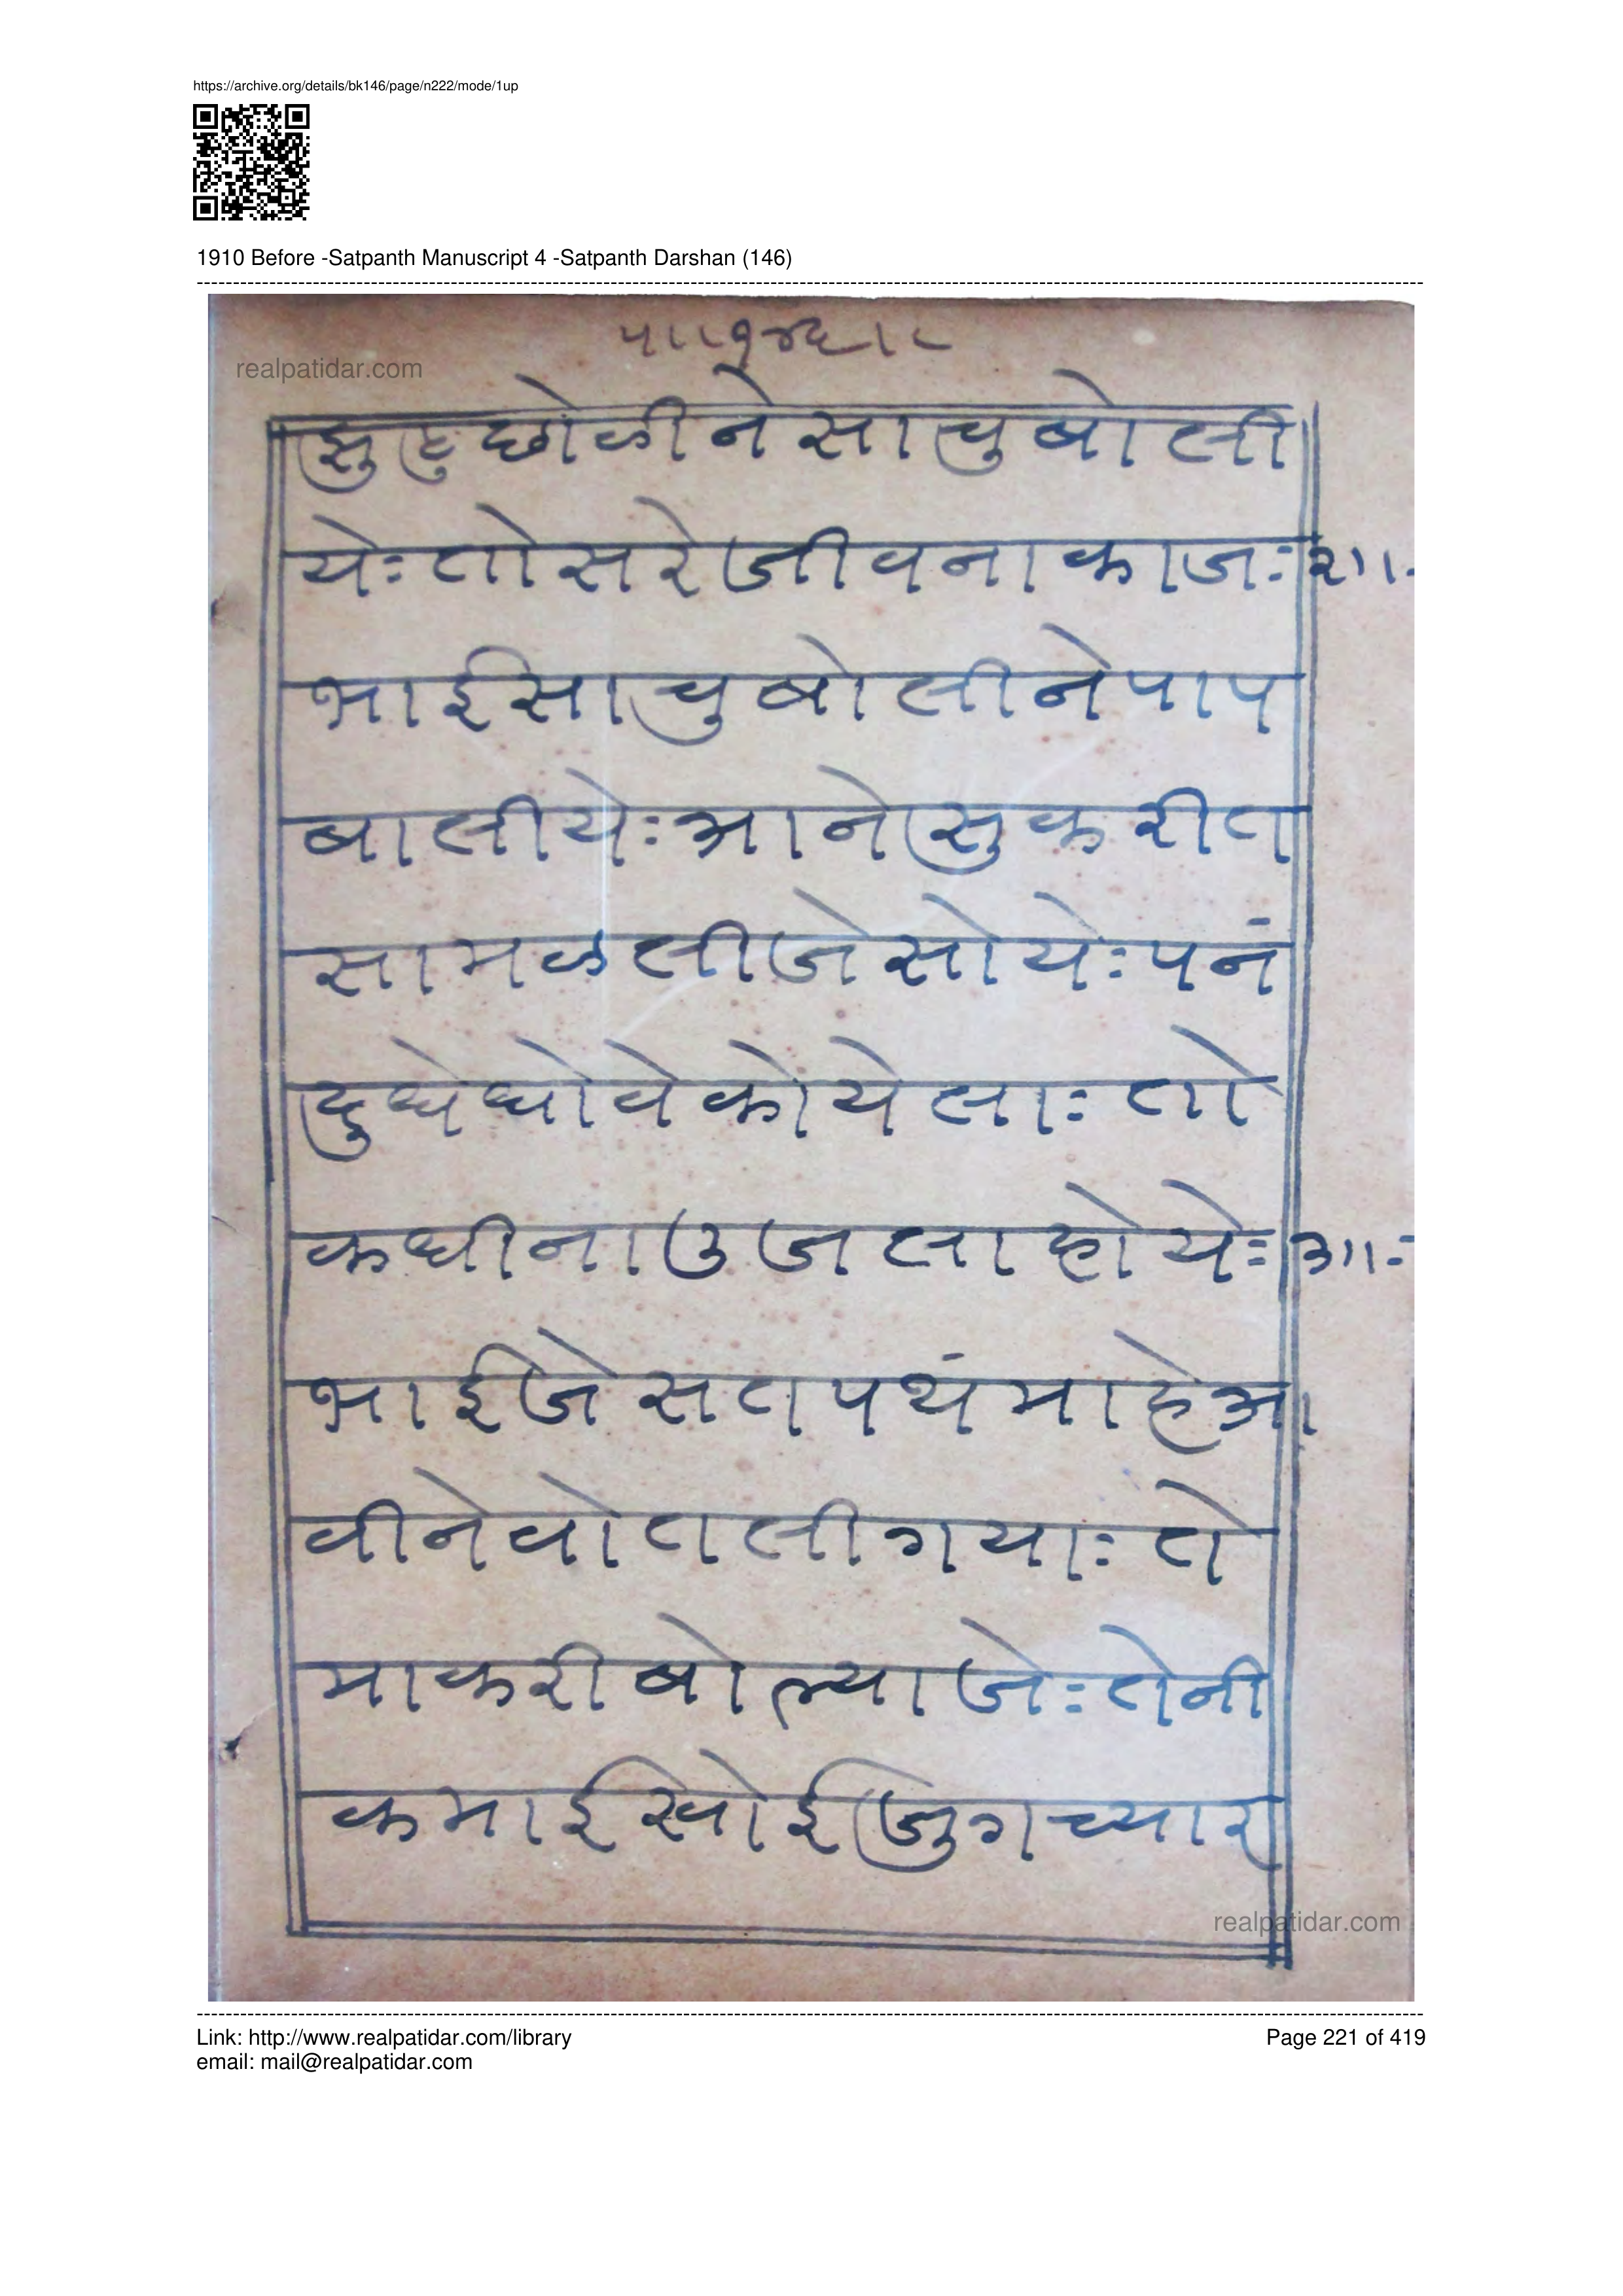 https://archive.org/details/bk146/page/n222/mode/1up
1910 Before -Satpanth Manuscript 4 -Satpanth Darshan (146)
realpatidar.com
झुहु छोळीने साचु बोली
येः तो सरे जीवना काजः २।।.
भाई साचु बोलीने पाप
बालीयेः आने सुकरीत
सामळ लीजे सोयेः पनं
दुधे धोवे कोयेलाः तो
कधी ना उजला होयेः ३।।ः
भाई जे सतपथं माहे आ
वीने वोतली गयाः ते
मा करी बोल्या जेः तेनी
कमाई खोई जुग च्यार
realpatidar.com
Link: http://www.realpatidar.com/library
Page 221 of 419
email: mail@realpatidar.com